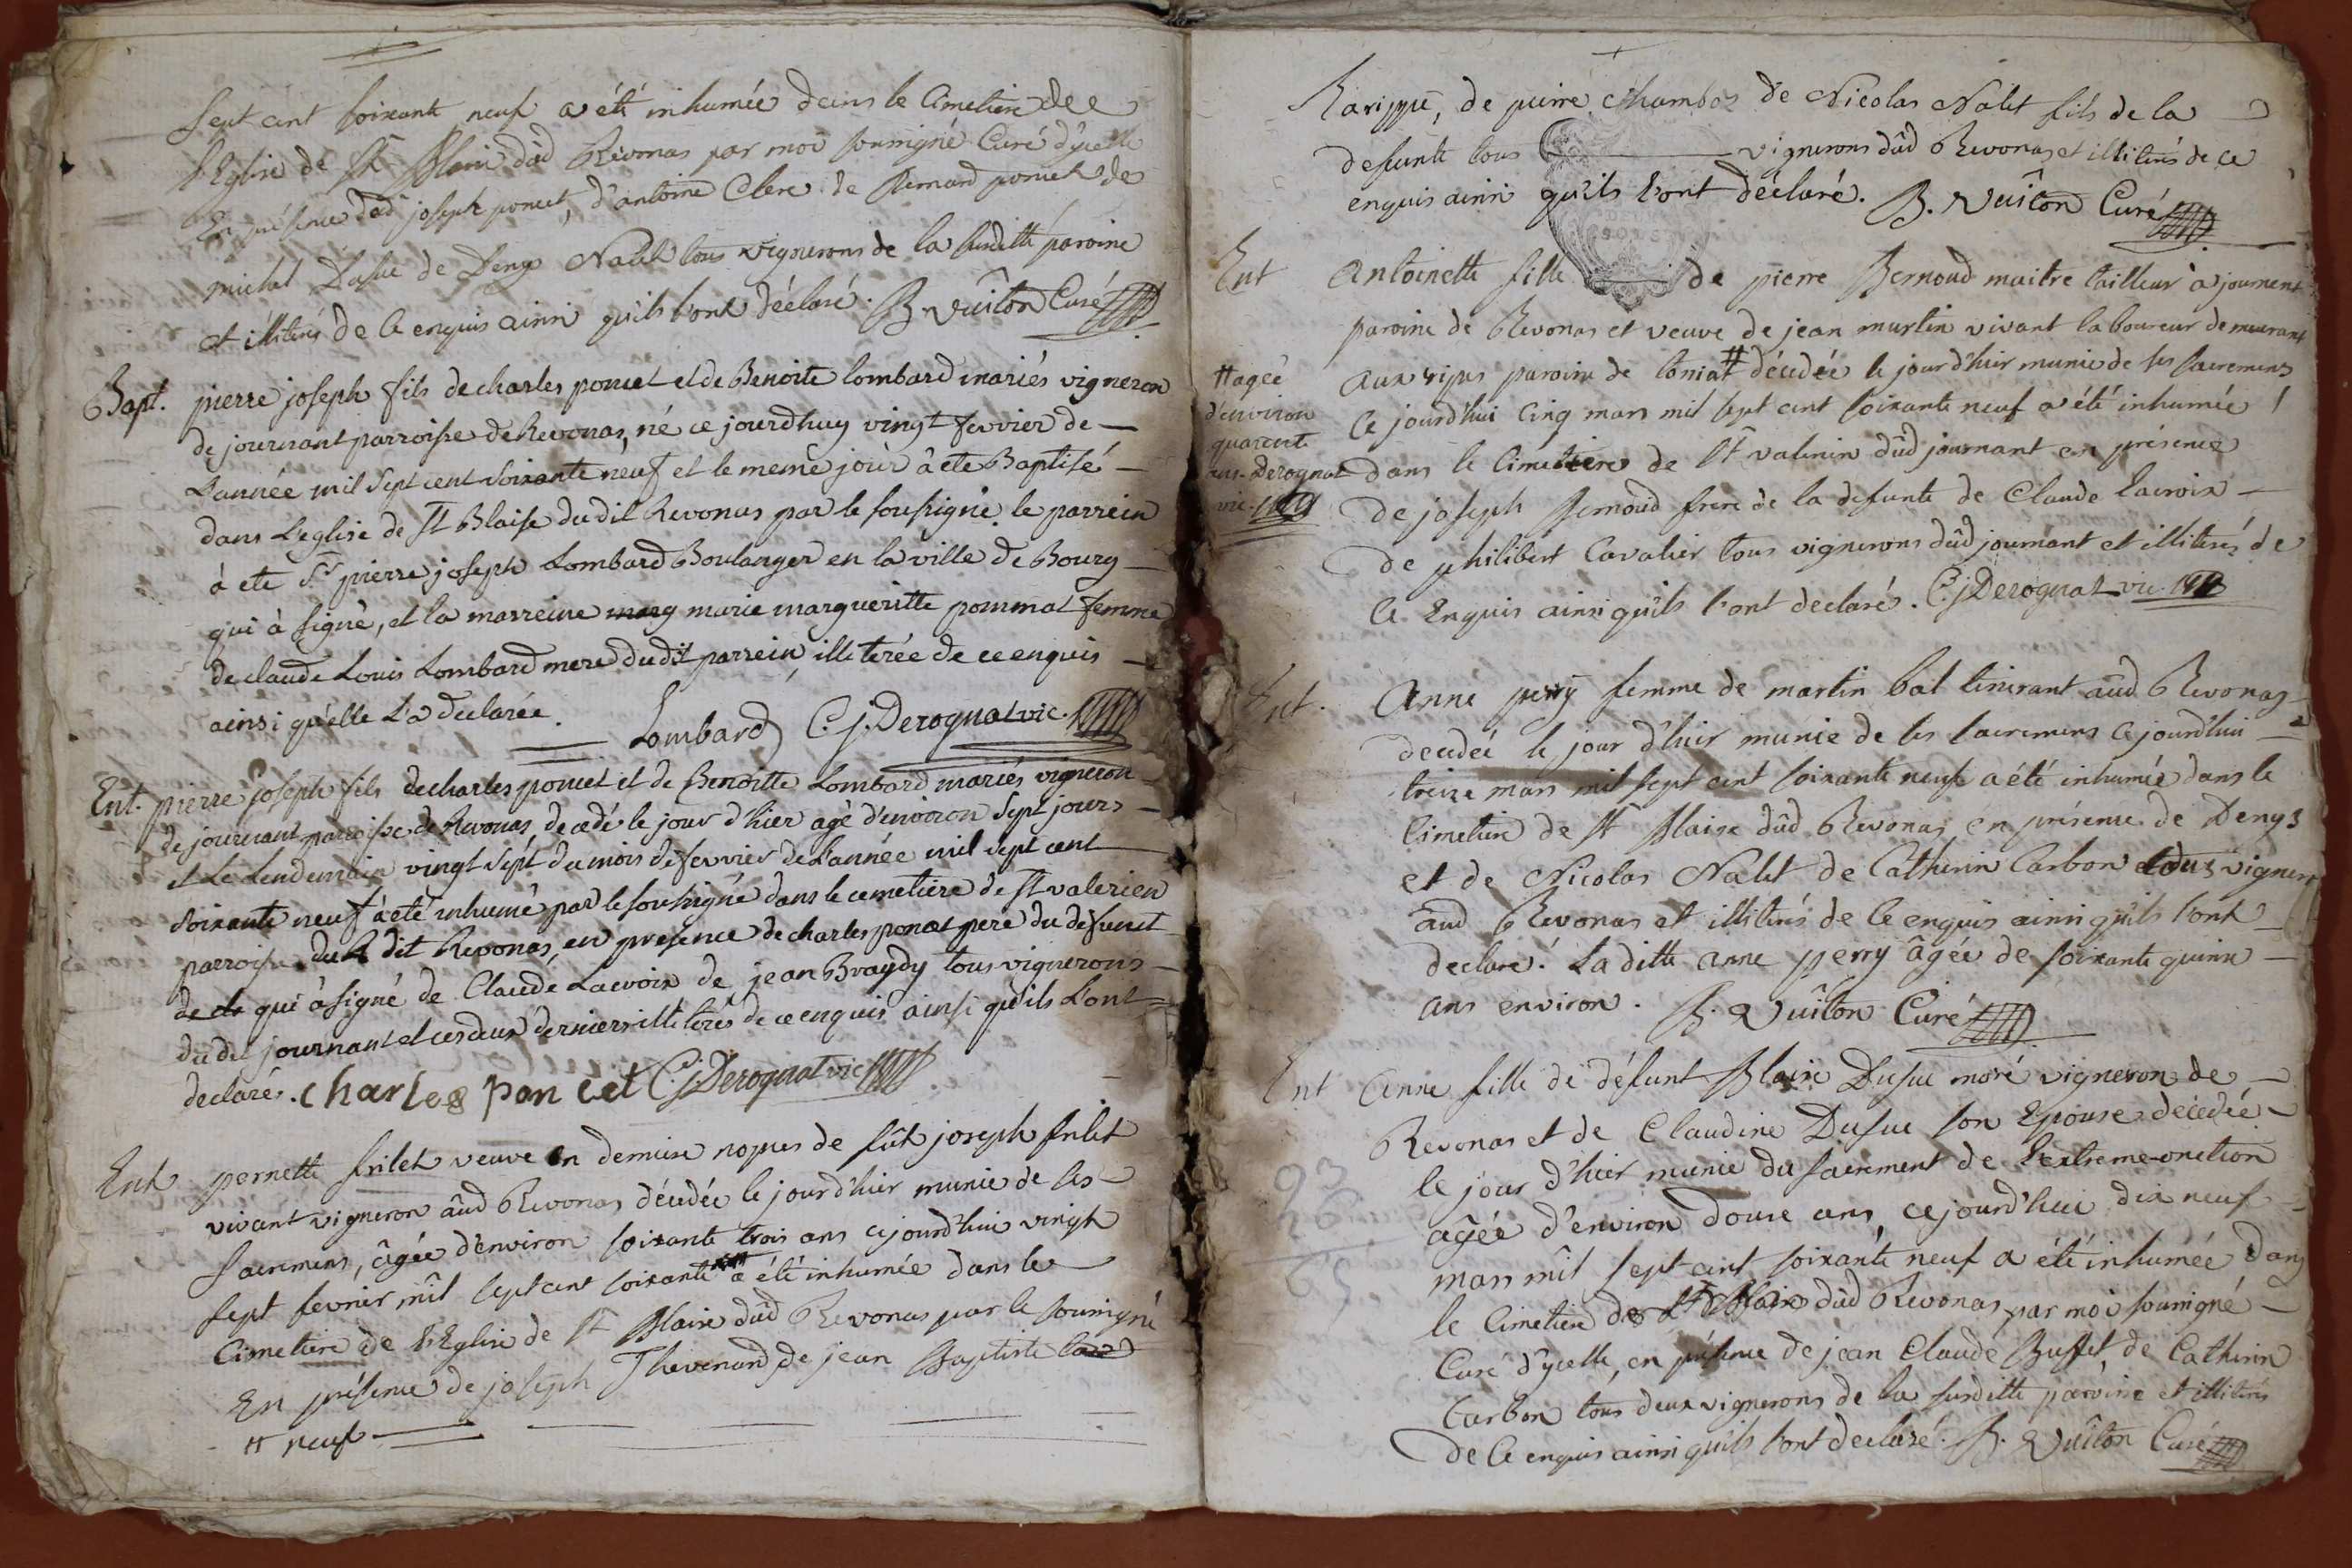 Sept cent soixante neuf a été inhumée dans le Cimetiere de
l'Eglise de St Blaise dûd Revonas par moi soussigné Curé d'ycelle
En présence dûd joseph poncet, d'antoine Clerc de Bernard poncet de
michel Dufuc de Denys Nalet tous vignerons de la susditte paroisse
et illiterés de ce enquis ainsi qu'ils l'ont déclaré. B. Vuiton Curé
Bapt. pierre joseph fils de charles poncet et de Benoite lombard mariés vigneron
de journant parroisse de Revonas, né ce jourdhuy vingt fevrier de
L'année mil Sept cent soixante neuf et le meme jour à ete Baptisé
dans L'eglise de St Blaise du dit Revonas par le soussigné. le parrein
à ete Sr pierre joseph Lombard Boulanger en la ville de Bourg
qui à signé, et la marreine marie margueritte pommat femme
de claude Louis Lombard mere dudit parrein, illiterée de ce enquis
ainsi qu'elle L'a declarée.
Lombard C. j. Derognat vic.
Ent. pierre joseph fils de charles poncet et de Benoitte Lombard mariés vigneron
de journant parroisse de Revonas, decedé le jour d'hier agé d'environ Sept jours
et Le Lendemain vingt sept du mois de fevrier de L'année mil sept cent
soixante neuf à eté inhumé par le soussigné dans le cemetiere de St valerien
parroisse dudit Revonas, en presence de charles poncet pere du defunct
qui à signé de Claude Lacroix de jean Braydy tous vignerons
du dit journant et ces deux derniers illiterés de ce enquis ainsi qu'ils L'ont
declarés. charles poncet C. j. Derognat vic
Ent pernette frilet veuve en derniere nopces de fût joseph frilet
vivant vigneron aûd Revonas décedée le jour d'hier munie de ses
sacremens, âgée d'environ soixante trois ans cejourd'hui vingt
sept fevrier mil sept cent soixante # a été inhumée dans le
Cimetiere de l'Eglise de St Blaise dûd Revonas par le soussigné
En présence de joseph Thevenard, de jean Baptiste
# neuf
Karippe, de pierre Chambos de Nicolas Nalet fils de la
defunte tous vignerons dûd Revonas et illiterés de ce
enquis ainsi qu'ils l'ont déclaré. B. Vuiton Curé
Ent Antoinette fille de pierre Bernoud maitre tailleur à journent
paroisse de Revonas et veuve de jean martin vivant laboureur demeurant
aux paroisse de # décedée le jour d'hier munie de ses sacremens
# agée
d'environ
quarente
ans. Derognat
vic.
Ce jourd'hui Cinq mars mil sept cent soixante neuf a été inhumée
dans le Cimetiere de St valerien dûd journant en présence
de joseph Bernoud frere de la defunte de Claude Lacroix
de philibert Cavalier tous vignerons dûd journant et illiterés de
Ce Enquis ainsi qu'ils l'ont declaré. C. j. Derognat vic.
Ent. Anne perry femme de martin bal tisserant aûd Revonas
decedée le jour d'hier munie de ses sacremens cejourd'hui
treize mars mil sept cent soixante neuf a été inhumée dans le
Cimetiere de St Blaise dûd Revonas en présence de Denys
et de Nicolas Nalet de Catherin Carbon tous vignerons
aud Revonas et illiterés de Ce enquis ainsi qu'ils l'ont
declaré. La ditte anne perry âgée de soixante quinze
ans environ. B. Vuiton Curé
Ent Anne fille de défunt Blaise Dufuc moré vigneron de
Revonas et de Claudine Dufuc son Epouse decedée
le jour d'hier munie du sacrement de l'extreme-onction
agée d'environ douze ans, cejourd'hui dix neuf
mars mil sept cent soixante neuf a été inhumée dans
le Cimetiere de St Blaise dûd Revonas par moi soussigné
Curé d'ycelle, en présence de jean Claude Buffet, de Catherin
Carbon tous deux vignerons de la susditte paroisse et illiterés
de Ce enquis ainsi qu'ils l'ont declaré. B. Vuiton Curé